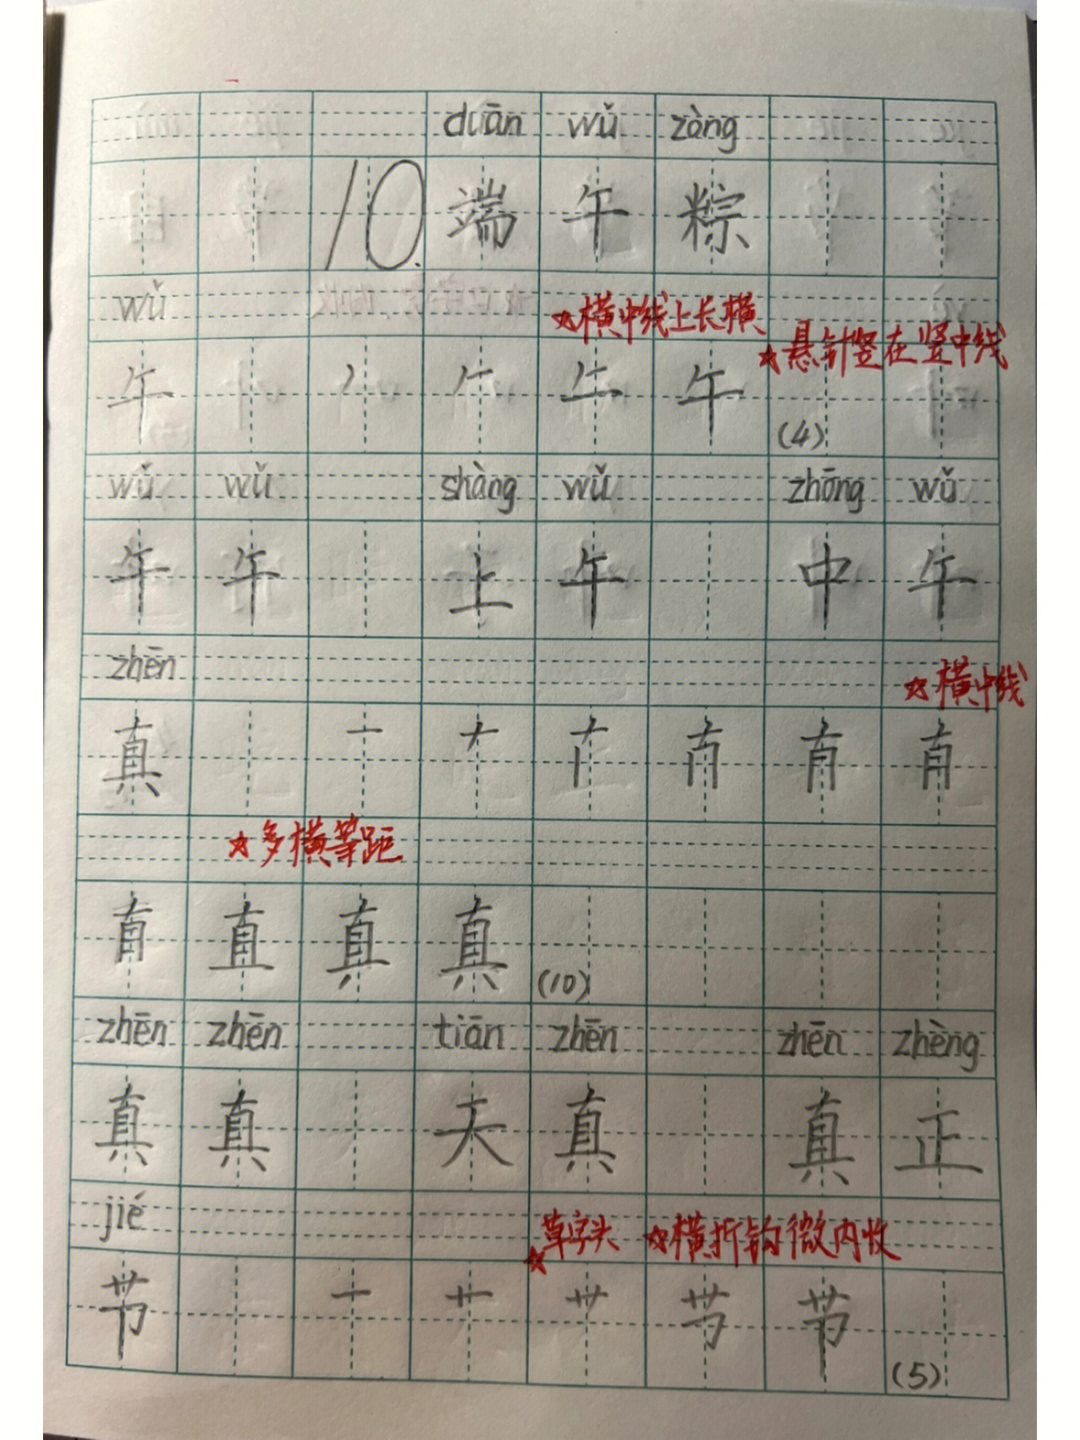 duān wǔ zàng
10. 端 午 粽
wǔ ☆横中线上长横
☆悬针竖在竖中线
午 丿 𠂉 𠂒 午 (4)
wǔ wǔ shàng wǔ zhōng wǔ
午 午 上 午 中 午
zhēn ☆横中线
真 一 十
☆多横等距
直 真 (10)
zhēn zhēn tiān zhēn zhēn zhèng
真 真 天 真 真 正
jié ☆草字头 ☆横折钩微内收
节 一 十 艹 节 (5)